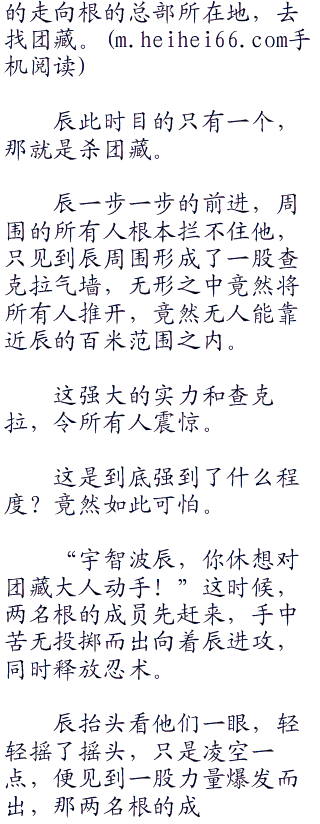 的走向根的总部所在地，去
找团藏。(m.heihei66.com手
机阅读)
辰此时目的只有一个，
那就是杀团藏。
辰一步一步的前进，周
围的所有人根本拦不住他，
只见到辰周围形成了一股查
克拉气墙，无形之中竟然将
所有人推开，竟然无人能靠
近辰的百米范围之内。
这强大的实力和查克
拉，令所有人震惊。
这是到底强到了什么程
度？竟然如此可怕。
“宇智波辰，你休想对
团藏大人动手！”这时候，
两名根的成员先赶来，手中
苦无投掷而出向着辰进攻，
同时释放忍术。
辰抬头看他们一眼，轻
轻摇了摇头，只是凌空一
点，便见到一股力量爆发而
出，那两名根的成